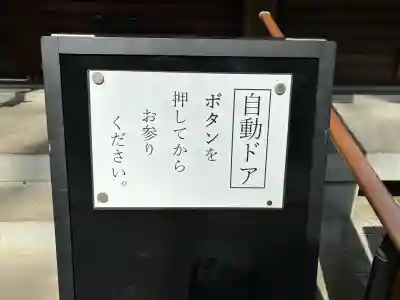 自動ドア
ボタンを
押してから
お参り
ください。